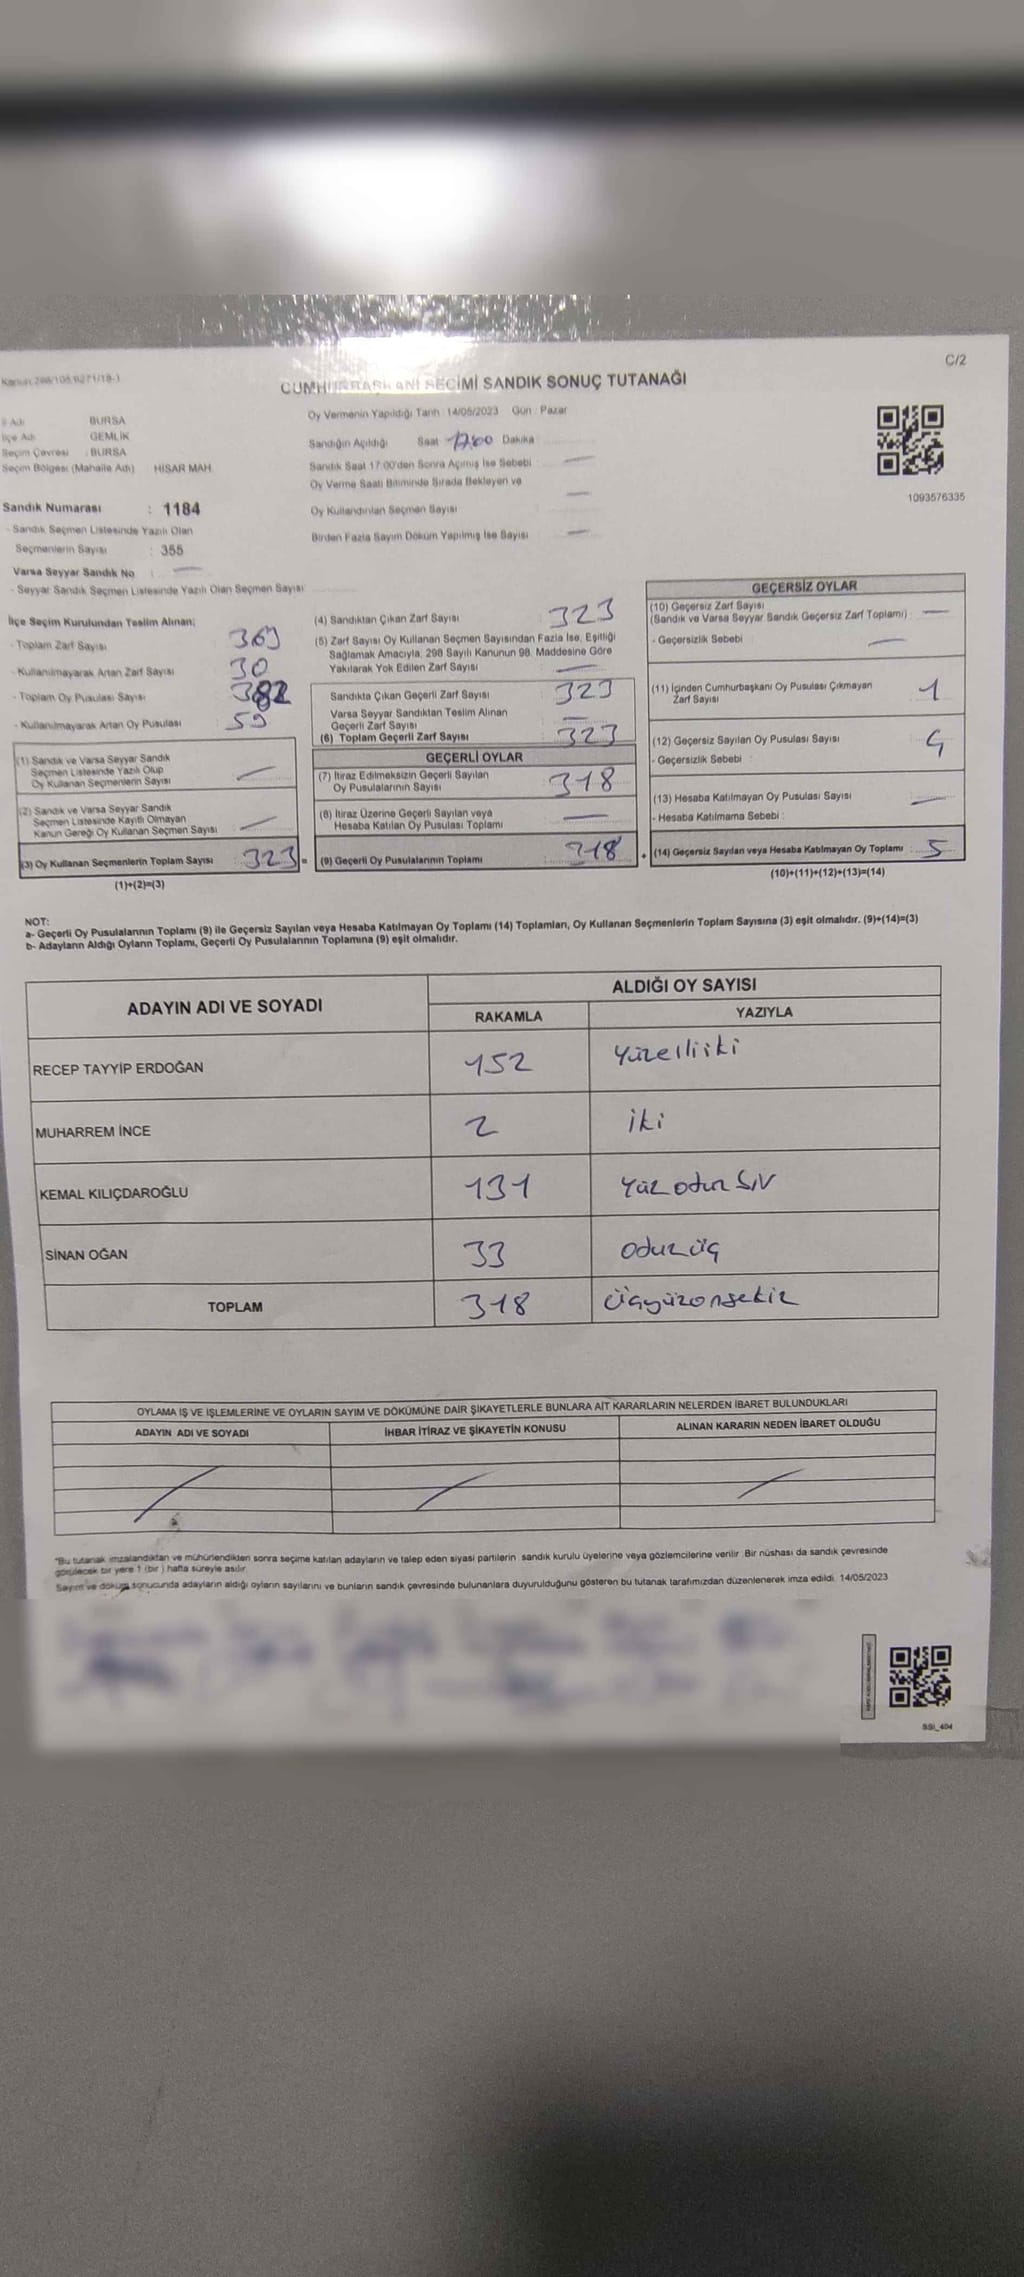 Kanun:298/105;6271/18-1
C/2
CUMHURBAŞKANI SEÇİMİ SANDIK SONUÇ TUTANAĞI
İl Adı BURSA
İlçe Adı GEMLİK
Seçim Çevresi : BURSA
Seçim Bölgesi (Mahalle Adı) HİSAR MAH.
Sandık Numarası : 1184
- Sandık Seçmen Listesinde Yazılı Olan
Seçmenlerin Sayısı : 355
Varsa Seyyar Sandık No : —
- Seyyar Sandık Seçmen Listesinde Yazılı Olan Seçmen Sayısı
Oy Vermenin Yapıldığı Tarih : 14/05/2023 Gün : Pazar
Sandığın Açıldığı Saat 17:00 Dakika
Sandık Saat 17:00'den Sonra Açılmış İse Sebebi : —
Oy Verme Saati Bitiminde Sırada Bekleyen ve
Oy Kullandırılan Seçmen Sayısı —
Birden Fazla Sayım Döküm Yapılmış İse Sayısı —
1093576335
İlçe Seçim Kurulundan Teslim Alınan;
- Toplam Zarf Sayısı 363
- Kullanılmayarak Artan Zarf Sayısı 30
- Toplam Oy Pusulası Sayısı 382
- Kullanılmayarak Artan Oy Pusulası 59
(1) Sandık ve Varsa Seyyar Sandık
Seçmen Listesinde Yazılı Olup
Oy Kullanan Seçmenlerin Sayısı —
(2) Sandık ve Varsa Seyyar Sandık
Seçmen Listesinde Kayıtlı Olmayan
Kanun Gereği Oy Kullanan Seçmen Sayısı —
(3) Oy Kullanan Seçmenlerin Toplam Sayısı : 323 =
(1)+(2)=(3)
(4) Sandıktan Çıkan Zarf Sayısı : 323
(5) Zarf Sayısı Oy Kullanan Seçmen Sayısından Fazla İse, Eşitliği
Sağlamak Amacıyla, 298 Sayılı Kanunun 98. Maddesine Göre
Yakılarak Yok Edilen Zarf Sayısı : —
Sandıkta Çıkan Geçerli Zarf Sayısı : 323
Varsa Seyyar Sandıktan Teslim Alınan
Geçerli Zarf Sayısı : —
(6) Toplam Geçerli Zarf Sayısı : 323
GEÇERLİ OYLAR
(7) İtiraz Edilmeksizin Geçerli Sayılan
Oy Pusulalarının Sayısı : 318
(8) İtiraz Üzerine Geçerli Sayılan veya
Hesaba Katılan Oy Pusulası Toplamı : —
(9) Geçerli Oy Pusulalarının Toplamı : 318 +
GEÇERSİZ OYLAR
(10) Geçersiz Zarf Sayısı
(Sandık ve Varsa Seyyar Sandık Geçersiz Zarf Toplamı) : —
- Geçersizlik Sebebi : —
(11) İçinden Cumhurbaşkanı Oy Pusulası Çıkmayan
Zarf Sayısı : 1
(12) Geçersiz Sayılan Oy Pusulası Sayısı : 4
- Geçersizlik Sebebi :
(13) Hesaba Katılmayan Oy Pusulası Sayısı : —
- Hesaba Katılmama Sebebi :
(14) Geçersiz Sayılan veya Hesaba Katılmayan Oy Toplamı : 5
(10)+(11)+(12)+(13)=(14)
NOT:
a- Geçerli Oy Pusulalarının Toplamı (9) ile Geçersiz Sayılan veya Hesaba Katılmayan Oy Toplamı (14) Toplamları, Oy Kullanan Seçmenlerin Toplam Sayısına (3) eşit olmalıdır. (9)+(14)=(3)
b- Adayların Aldığı Oyların Toplamı, Geçerli Oy Pusulalarının Toplamına (9) eşit olmalıdır.
ADAYIN ADI VE SOYADI ALDIĞI OY SAYISI
RAKAMLA YAZIYLA
RECEP TAYYİP ERDOĞAN 152 Yüzelliiki
MUHARREM İNCE 2 iki
KEMAL KILIÇDAROĞLU 131 Yüz otuz
SİNAN OĞAN 33 oduzüç
TOPLAM 318 Üçyüzonsekiz
OYLAMA İŞ VE İŞLEMLERİNE VE OYLARIN SAYIM VE DÖKÜMÜNE DAİR ŞİKAYETLERLE BUNLARA AİT KARARLARIN NELERDEN İBARET BULUNDUKLARI
ADAYIN ADI VE SOYADI İHBAR İTİRAZ VE ŞİKAYETİN KONUSU ALINAN KARARIN NEDEN İBARET OLDUĞU
*Bu tutanak imzalandıktan ve mühürlendikten sonra seçime katılan adayların ve talep eden siyasi partilerin sandık kurulu üyelerine veya gözlemcilerine verilir. Bir nüshası da sandık çevresinde
görülecek bir yere 1 (bir ) hafta süreyle asılır.
Sayım ve döküm sonucunda adayların aldığı oyların sayılarını ve bunların sandık çevresinde bulunanlara duyurulduğunu gösteren bu tutanak tarafımızdan düzenlenerek imza edildi. 14/05/2023
SSI_404